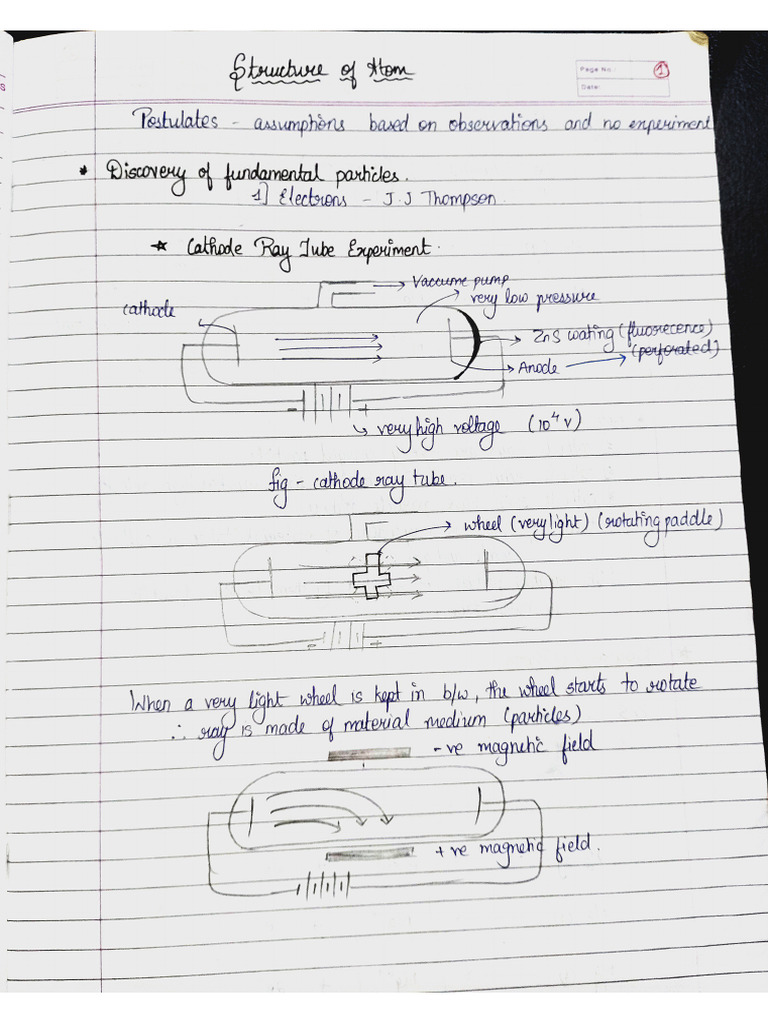 Structure of Atom
Page No. 1
Date:
Postulates - assumptions based on observations and no experiment
* Discovery of fundamental particles.
1] Electrons - J.J Thompson.
* Cathode Ray Tube Experiment.
Vaccume pump
very low pressure
cathode
ZnS coating (fluorecence)
(perforated)
Anode
- +
very high voltage (10⁴ v)
fig - cathode ray tube.
wheel (very light) (rotating paddle)
- +
When a very light wheel is kept in b/w, the wheel starts to rotate
∴ ray is made of material medium (particles)
-ve magnetic field
+ve magnetic field.